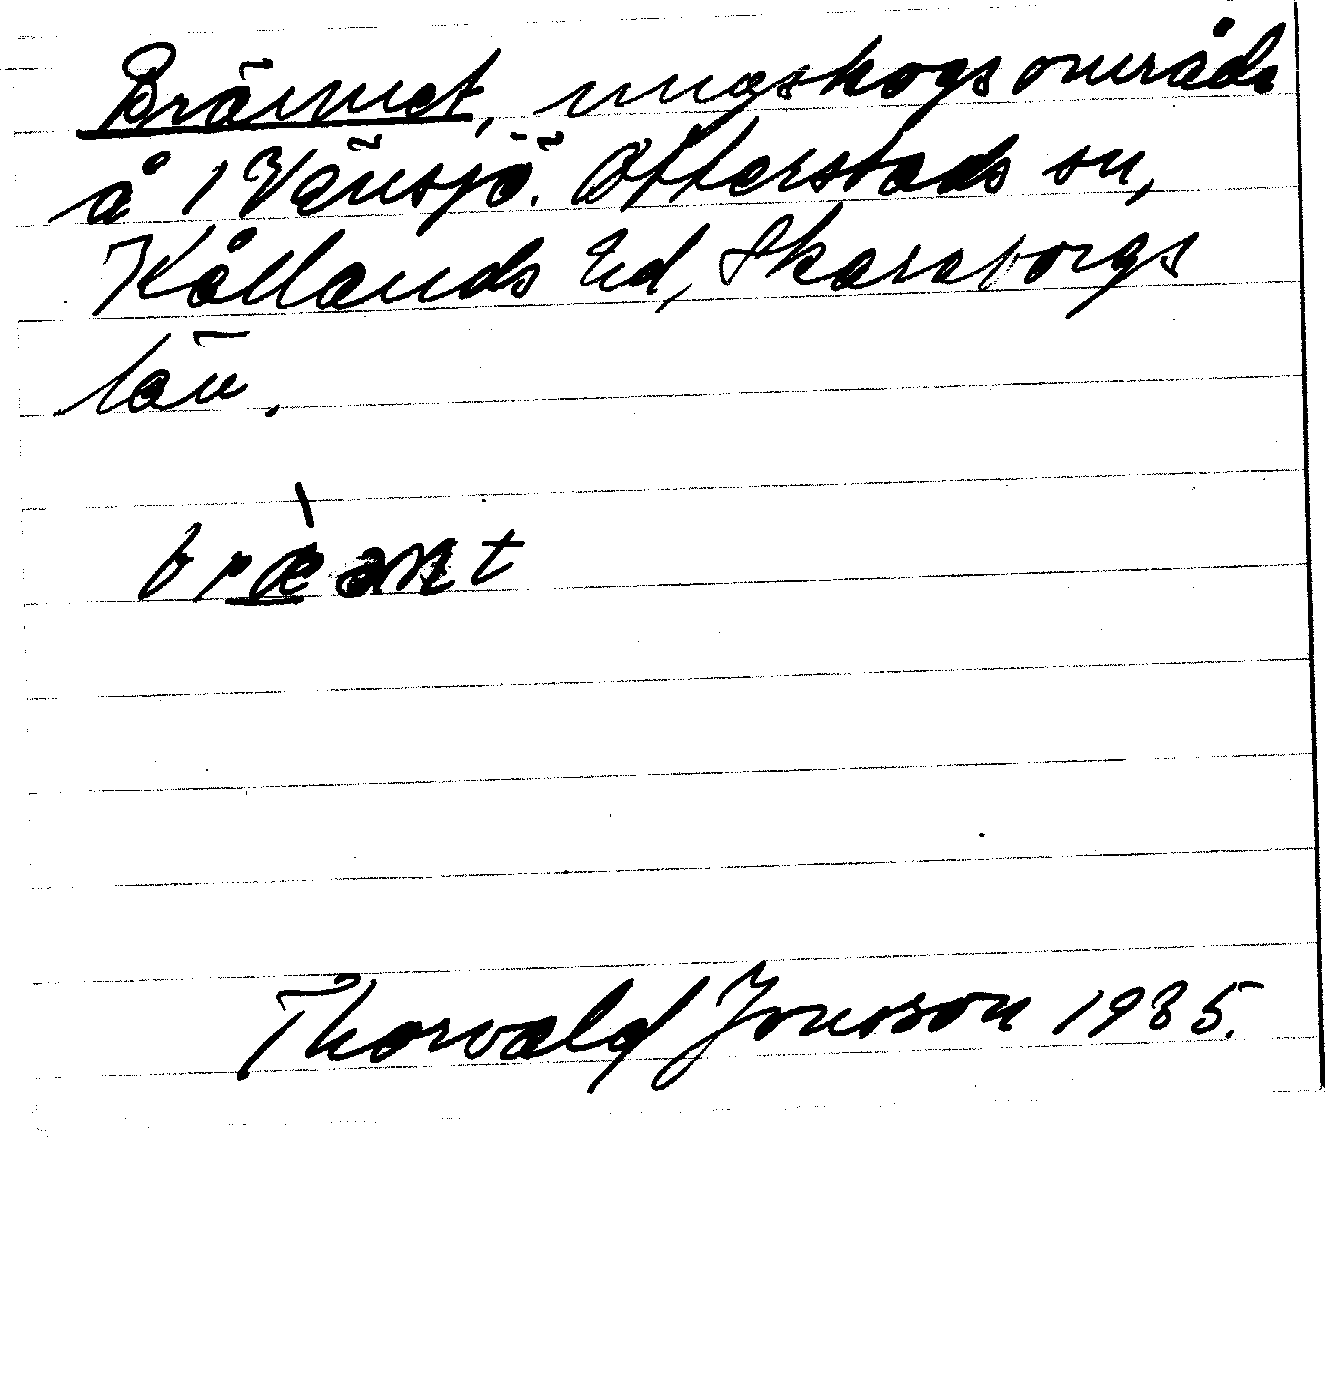 Brännet, ungskogsområde
å 1 Vänsjö. Otterstads sn,
Kållands hd, Skaraborgs
län.
Thorvald Jonsson 1985.